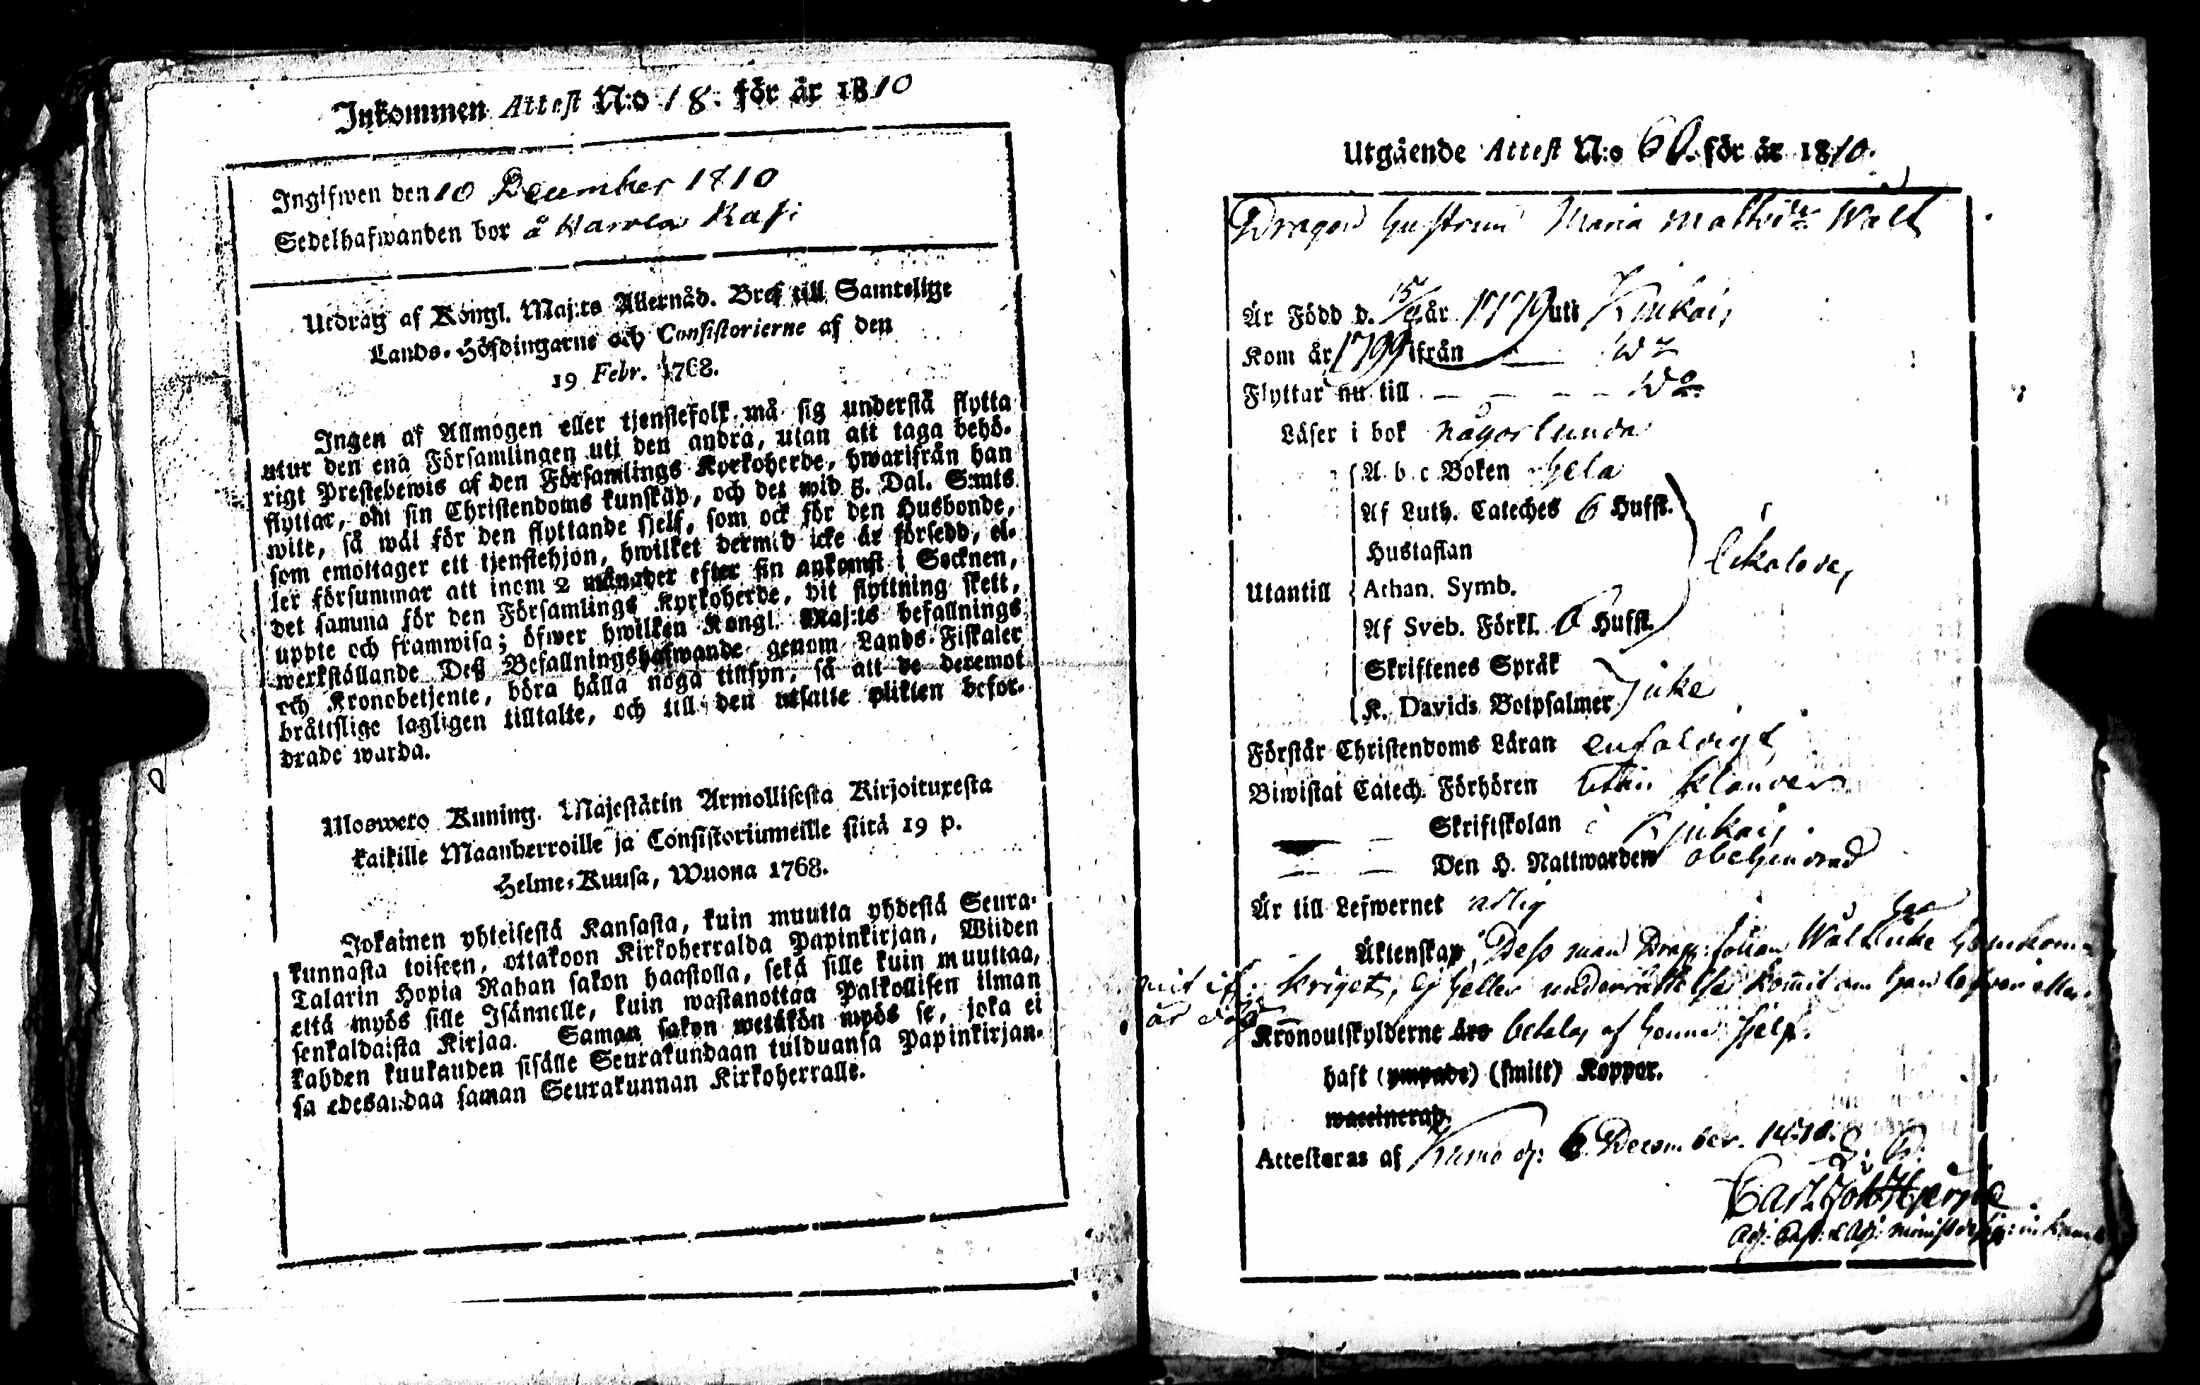 Inkommen Attest N:o 18. för år 1810
Ingifwen den 10 December 1810
Sedelhafwanden bor å Harola Rasi
Utdrag af Kongl. Maj:ts Allernåd. Bref till Samtelige
Lands-Höfdingarne och Consistorierne af den
19 Febr. 1768.
Ingen af Allmogen eller tjenstefolk må sig understå flytta
utur den ena Församlingen uti den andra, utan att taga behö-
rigt Prestebewis af den Församlings Kyrkoherde, hwarifrån han
flyttar, om sin Christendoms kunskap, och det wid 5. Dal. S:mts
wite, så wäl för den flyttande sjelf, som ock för den Husbonde,
som emottager ett tjenstehjon, hwilket dermed icke är försedd, el-
ler försummar att inom 2 månader efter sin ankomst i Socknen,
det samma för den Församlings Kyrkoherde, dit flyttning skett,
uppte och framwisa; öfwer hwilken Kongl. Maj:ts befallnings
werkställande Deß Befallningshafwande genom Lands-Fiskaler
och Kronobetjente, böra hålla noga tillsyn, så att de deremot
bråttslige lagligen tilltalte, och till den utsatte plikten befor-
drade warda.
Uloswcto Kuning. Majestätin Armollisesta Kirjoituxesta
kaikille Maanherroille ja Consistoriumeille siitä 19 p.
Helme-Kuusa, Wuona 1768.
Jokainen yhteisestä Kansasta, kuin muutta yhdestä Seura-
kunnasta toiseen, ottakoon Kirkoherralda Papinkirjan, Wiiden
Talarin Hopia Rahan sakon haastolla, sekä sille kuin muuttaa,
että myös sille Isännelle, kuin wastanottaa Palkollisen ilman
senkaldaista Kirjaa. Saman sakon wetäkön myös se, joka ei
kahden kuukauden sisälle Seurakundaan tulduansa Papinkirjan-
sa edesandaa saman Seurakunnan Kirkoherralle.
Utgående Attest N:o 60. för år 1810.
Dragon hustrun Maria Mattsdr Wall
Är Född d. 15/ år 1779 uti Kjukais
Kom år 1799 ifrån — do
Flyttar nu till — — — — do
Läser i bok någorlunda
A. b. c. Boken hela
Af Luth. Cateches 6 Hufst.
Hustaflan
Utantill Athan. Symb.
Af Sveb. Förkl. 6 Hufst.
Skriftenes Språk
K. Davids Botpsalmer icke
Förstår Christendoms Läran enfaldigt
Biwistat Catech. Förhören utan klander
— — Skriftskolan i Kjukais.
— — Den H. Nattwarden obehindrad
Är till Lefwernet ärlig
Äktenskap, Dess man Drag: Johan Wall icke hemkom-
mit if: kriget, ej heller underrättelse kommit om han lefver eller
är död
Kronoutskylderne äro betalas af henne sjelf.
haft (ympade) (smitt) Koppor.
waccinerad
Attesteras af Kumo d: 6 December. 1810.
Carl